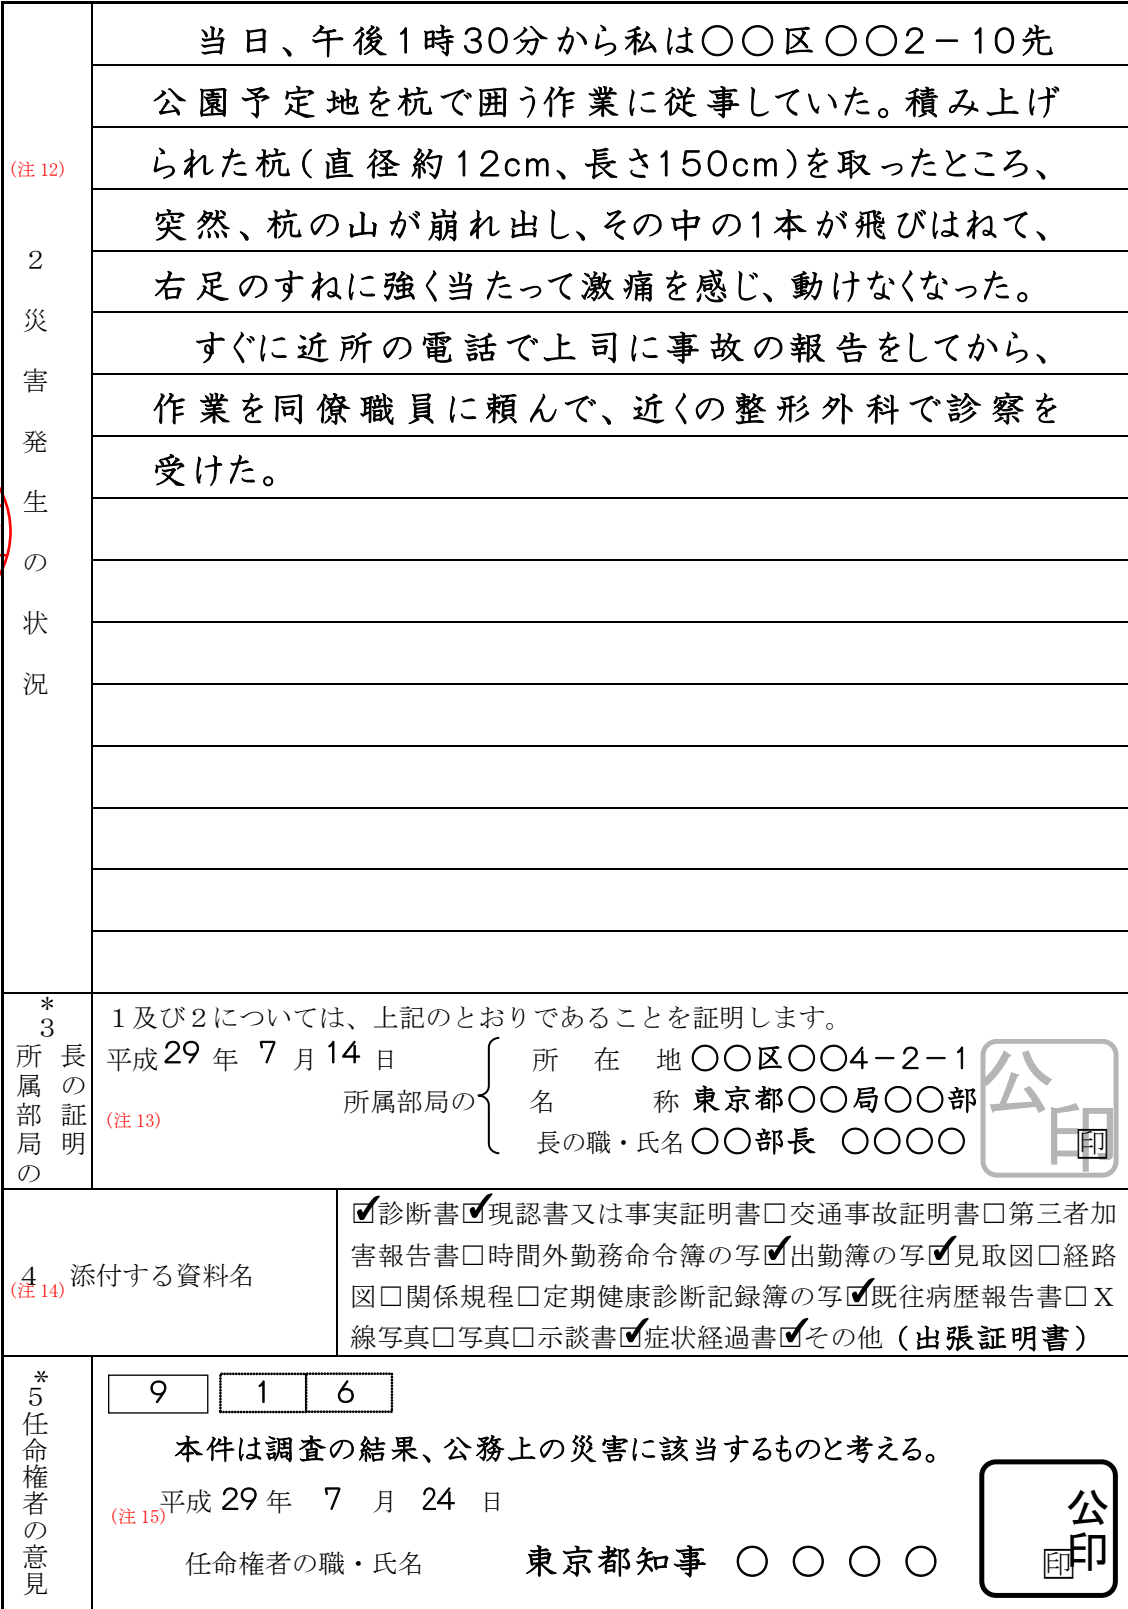 (注 12)
２災害発生の状況
当日、午後1時30分から私は○○区○○2－10先
公園予定地を杭で囲う作業に従事していた。積み上げ
られた杭（直径約12cm、長さ150cm）を取ったところ、
突然、杭の山が崩れ出し、その中の1本が飛びはねて、
右足のすねに強く当たって激痛を感じ、動けなくなった。
すぐに近所の電話で上司に事故の報告をしてから、
作業を同僚職員に頼んで、近くの整形外科で診察を
受けた。
*3 所属部局の長の証明
１及び２については、上記のとおりであることを証明します。
平成 29 年 7 月 14 日
(注 13)
所属部局の
所在地 ○○区○○4－2－1
名称 東京都○○局○○部
長の職・氏名 ○○部長 ○○○○
公印
印
4 添付する資料名
(注 14)
☑診断書☑現認書又は事実証明書□交通事故証明書□第三者加
害報告書□時間外勤務命令簿の写☑出勤簿の写☑見取図□経路
図□関係規程□定期健康診断記録簿の写☑既往病歴報告書□Ｘ
線写真□写真□示談書☑症状経過書☑その他（出張証明書）
*5任命権者の意見
9 1 6
本件は調査の結果、公務上の災害に該当するものと考える。
(注 15)
平成 29 年 7 月 24 日
任命権者の職・氏名 東京都知事 ○ ○ ○ ○
公印
印